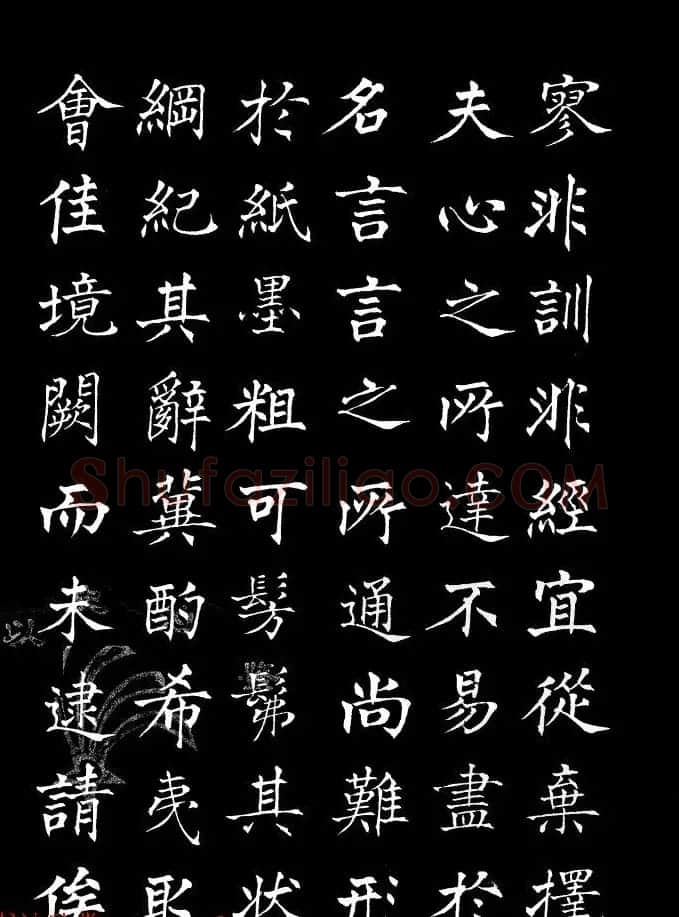 寥非訓非經宜從棄擇
夫心之所達不易盡於
名言言之所通尚難形
於紙墨粗可髣髴其狀
綱紀其辭冀酌希夷取
會佳境闕而未逮請俟
以
Shufaziliao.COM